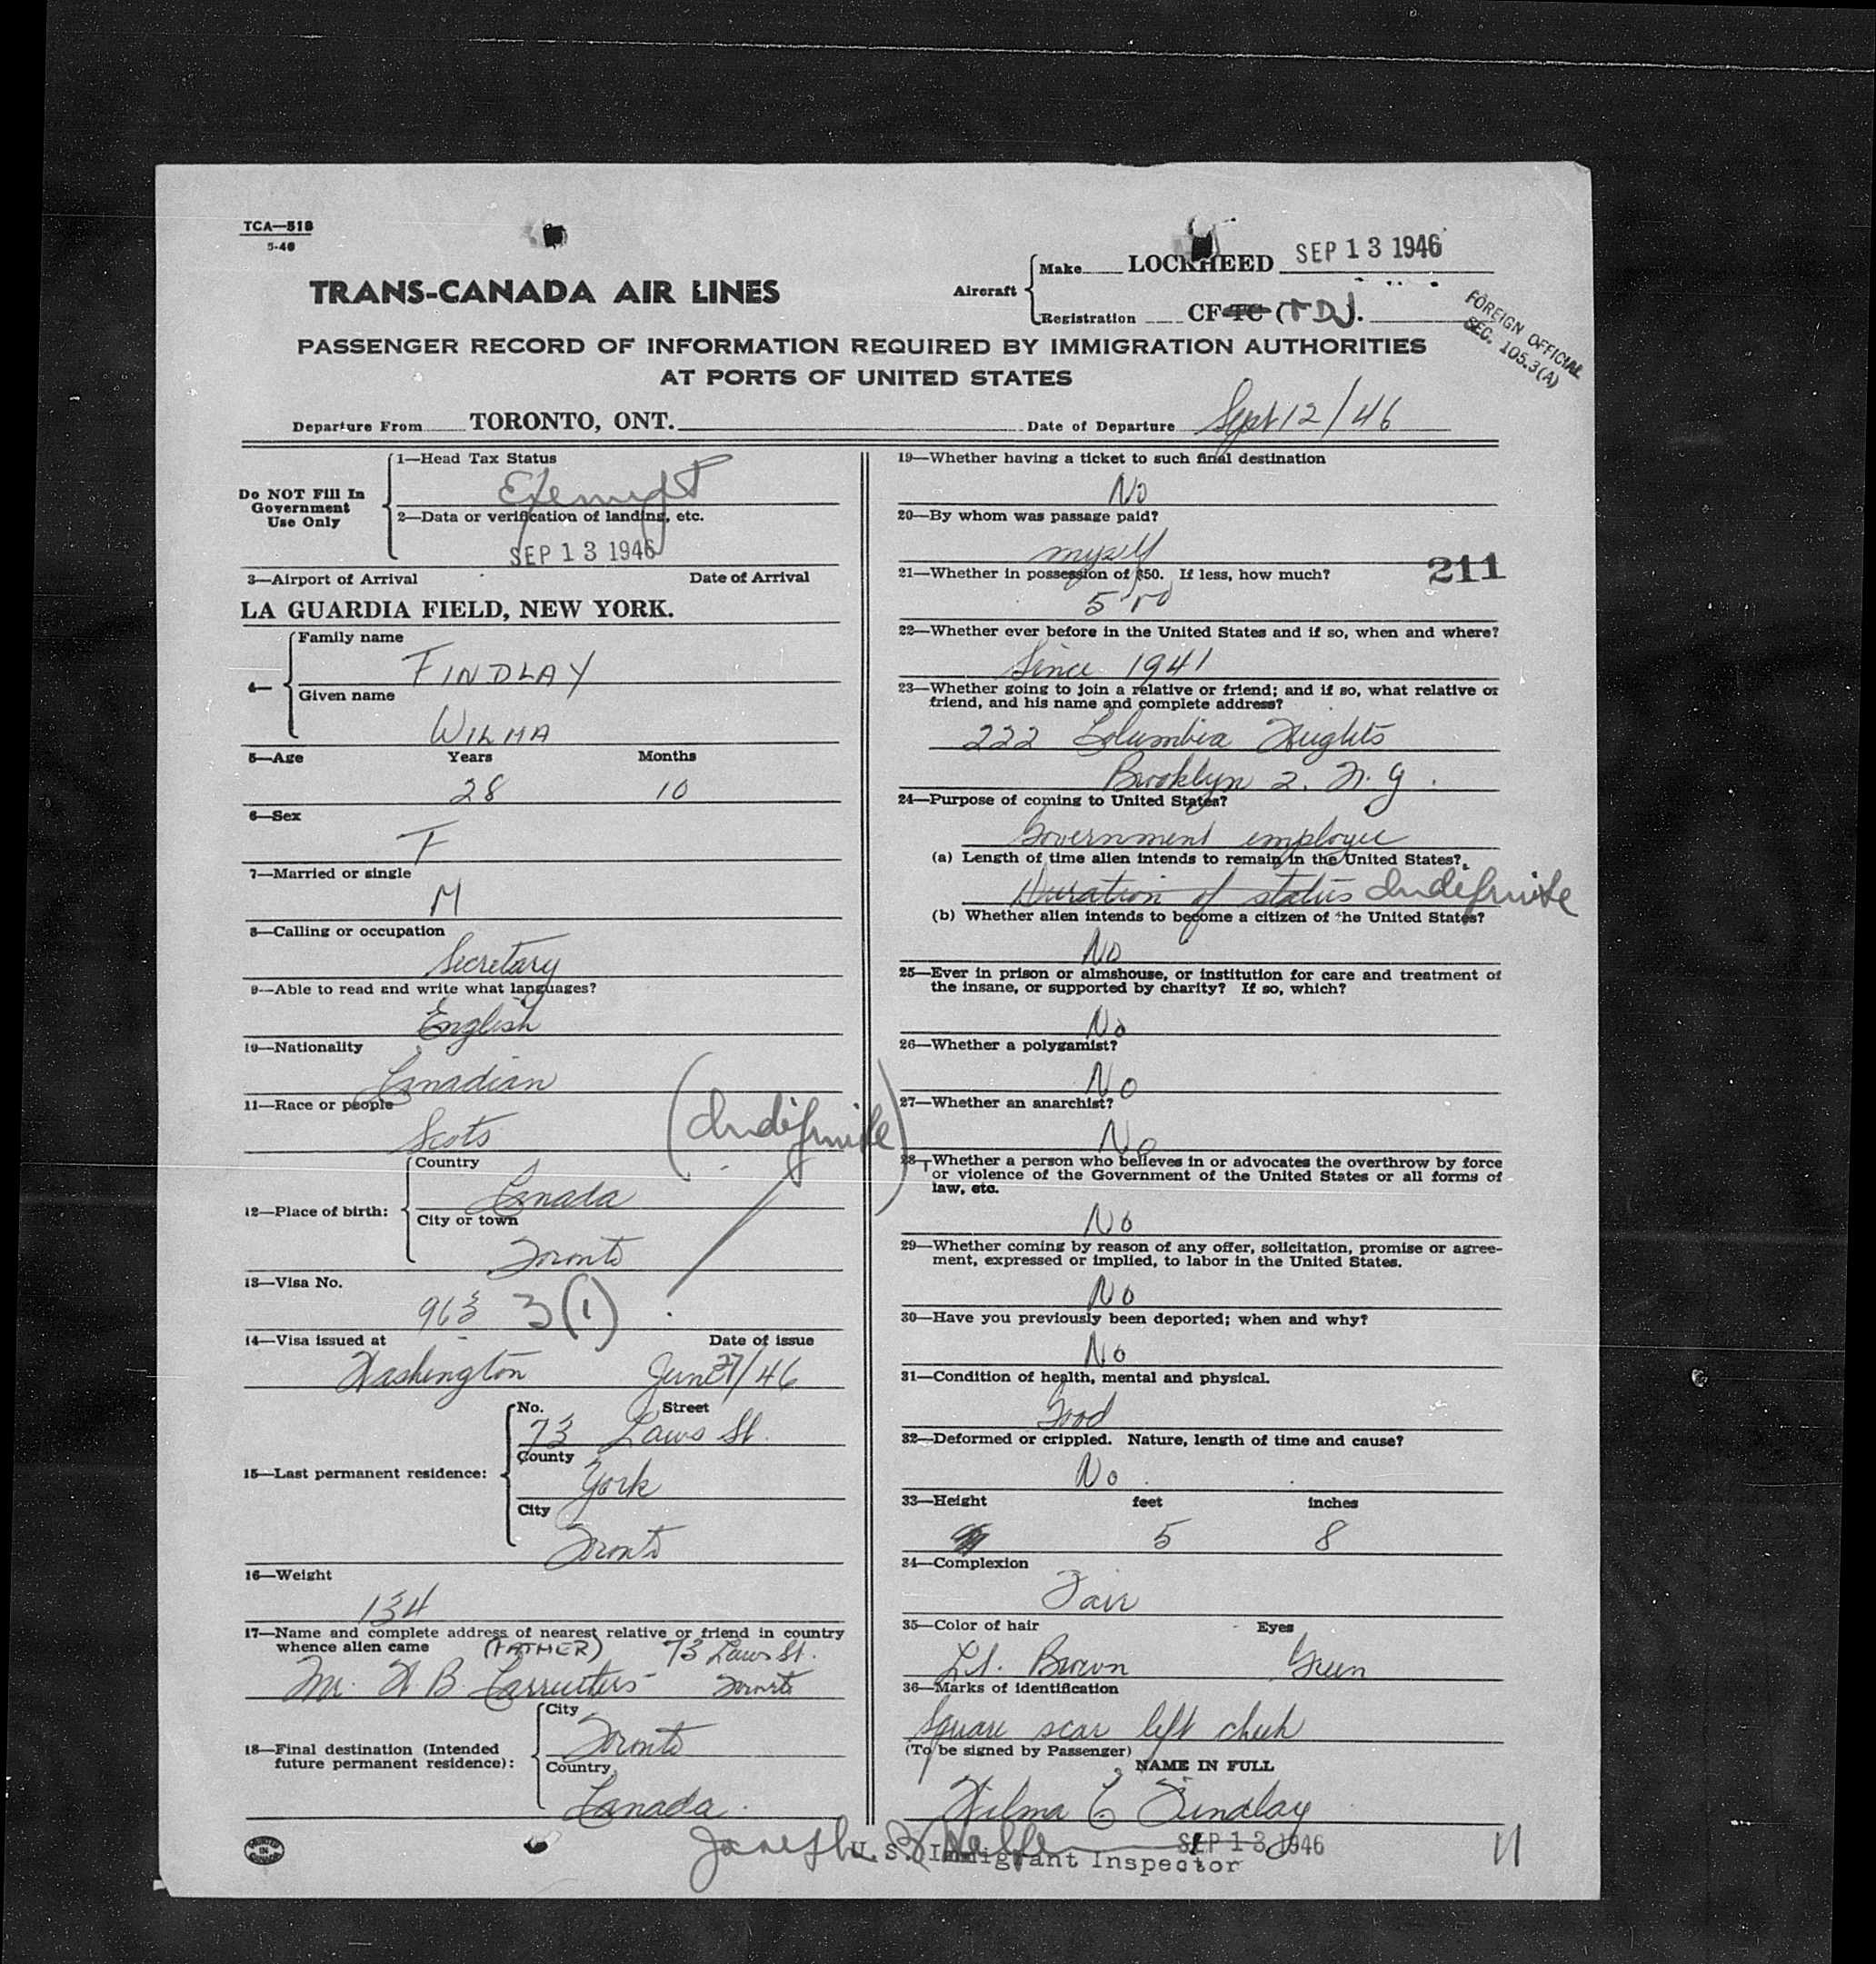 TCA—518
5-46
TRANS-CANADA AIR LINES
Aircraft
Make LOCKHEED SEP 13 1946
Registration CF-TC (TDJ).
FOREIGN OFFICIAL
SEC. 105.3(A)
PASSENGER RECORD OF INFORMATION REQUIRED BY IMMIGRATION AUTHORITIES
AT PORTS OF UNITED STATES
Departure From TORONTO, ONT. Date of Departure Sept 12/46
Do NOT Fill In
Government
Use Only
1—Head Tax Status
Exempt
2—Data or verification of landing, etc.
SEP 13 1946
3—Airport of Arrival Date of Arrival
LA GUARDIA FIELD, NEW YORK.
4—
Family name
FINDLAY
Given name
WILMA
5—Age Years Months
28 10
6—Sex
F
7—Married or single
M
8—Calling or occupation
Secretary
9—Able to read and write what languages?
English
10—Nationality
Canadian
11—Race or people
Scots
(Indefinite)
12—Place of birth:
Country
Canada
City or town
Toronto
13—Visa No.
963 3(1)
14—Visa issued at Date of issue
Washington Jun 27/46
15—Last permanent residence:
No. Street
73 Laws St.
County
York
City
Toronto
16—Weight
134
17—Name and complete address of nearest relative or friend in country
whence alien came (FATHER) 73 Laws St.
Mr. W. B. Carruthers Toronto
18—Final destination (Intended
future permanent residence):
City
Toronto
Country
Canada.
19—Whether having a ticket to such final destination
No
20—By whom was passage paid?
myself
21—Whether in possession of $50. If less, how much?
211
22—Whether ever before in the United States and if so, when and where?
Since 1941
23—Whether going to join a relative or friend; and if so, what relative or
friend, and his name and complete address?
222 Columbia Heights
Brooklyn 2. N. Y.
24—Purpose of coming to United States?
Government employee
(a) Length of time alien intends to remain in the United States?
Duration of status Indefinite
(b) Whether alien intends to become a citizen of the United States?
No
25—Ever in prison or almshouse, or institution for care and treatment of
the insane, or supported by charity? If so, which?
No
26—Whether a polygamist?
No
27—Whether an anarchist?
No
28—Whether a person who believes in or advocates the overthrow by force
or violence of the Government of the United States or all forms of
law, etc.
No
29—Whether coming by reason of any offer, solicitation, promise or agree-
ment, expressed or implied, to labor in the United States.
No
30—Have you previously been deported; when and why?
No
31—Condition of health, mental and physical.
Good
32—Deformed or crippled. Nature, length of time and cause?
No
33—Height feet inches
5 8
34—Complexion
Fair
35—Color of hair Eyes
Lt. Brown Green
36—Marks of identification
Square scar left cheek
(To be signed by Passenger)
NAME IN FULL
Wilma C Findlay
SEP 13 1946
U. S. Immigrant Inspector
11
PRINTED
IN
CANADA